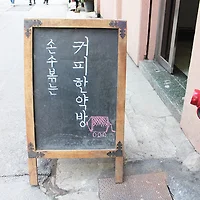 손수볶는
커피한약방